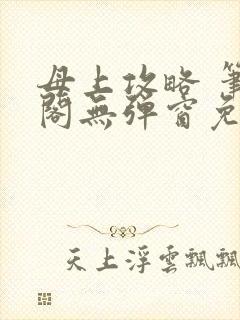 母上攻略 筆
閣無彈窗免
天上浮雲飄飄